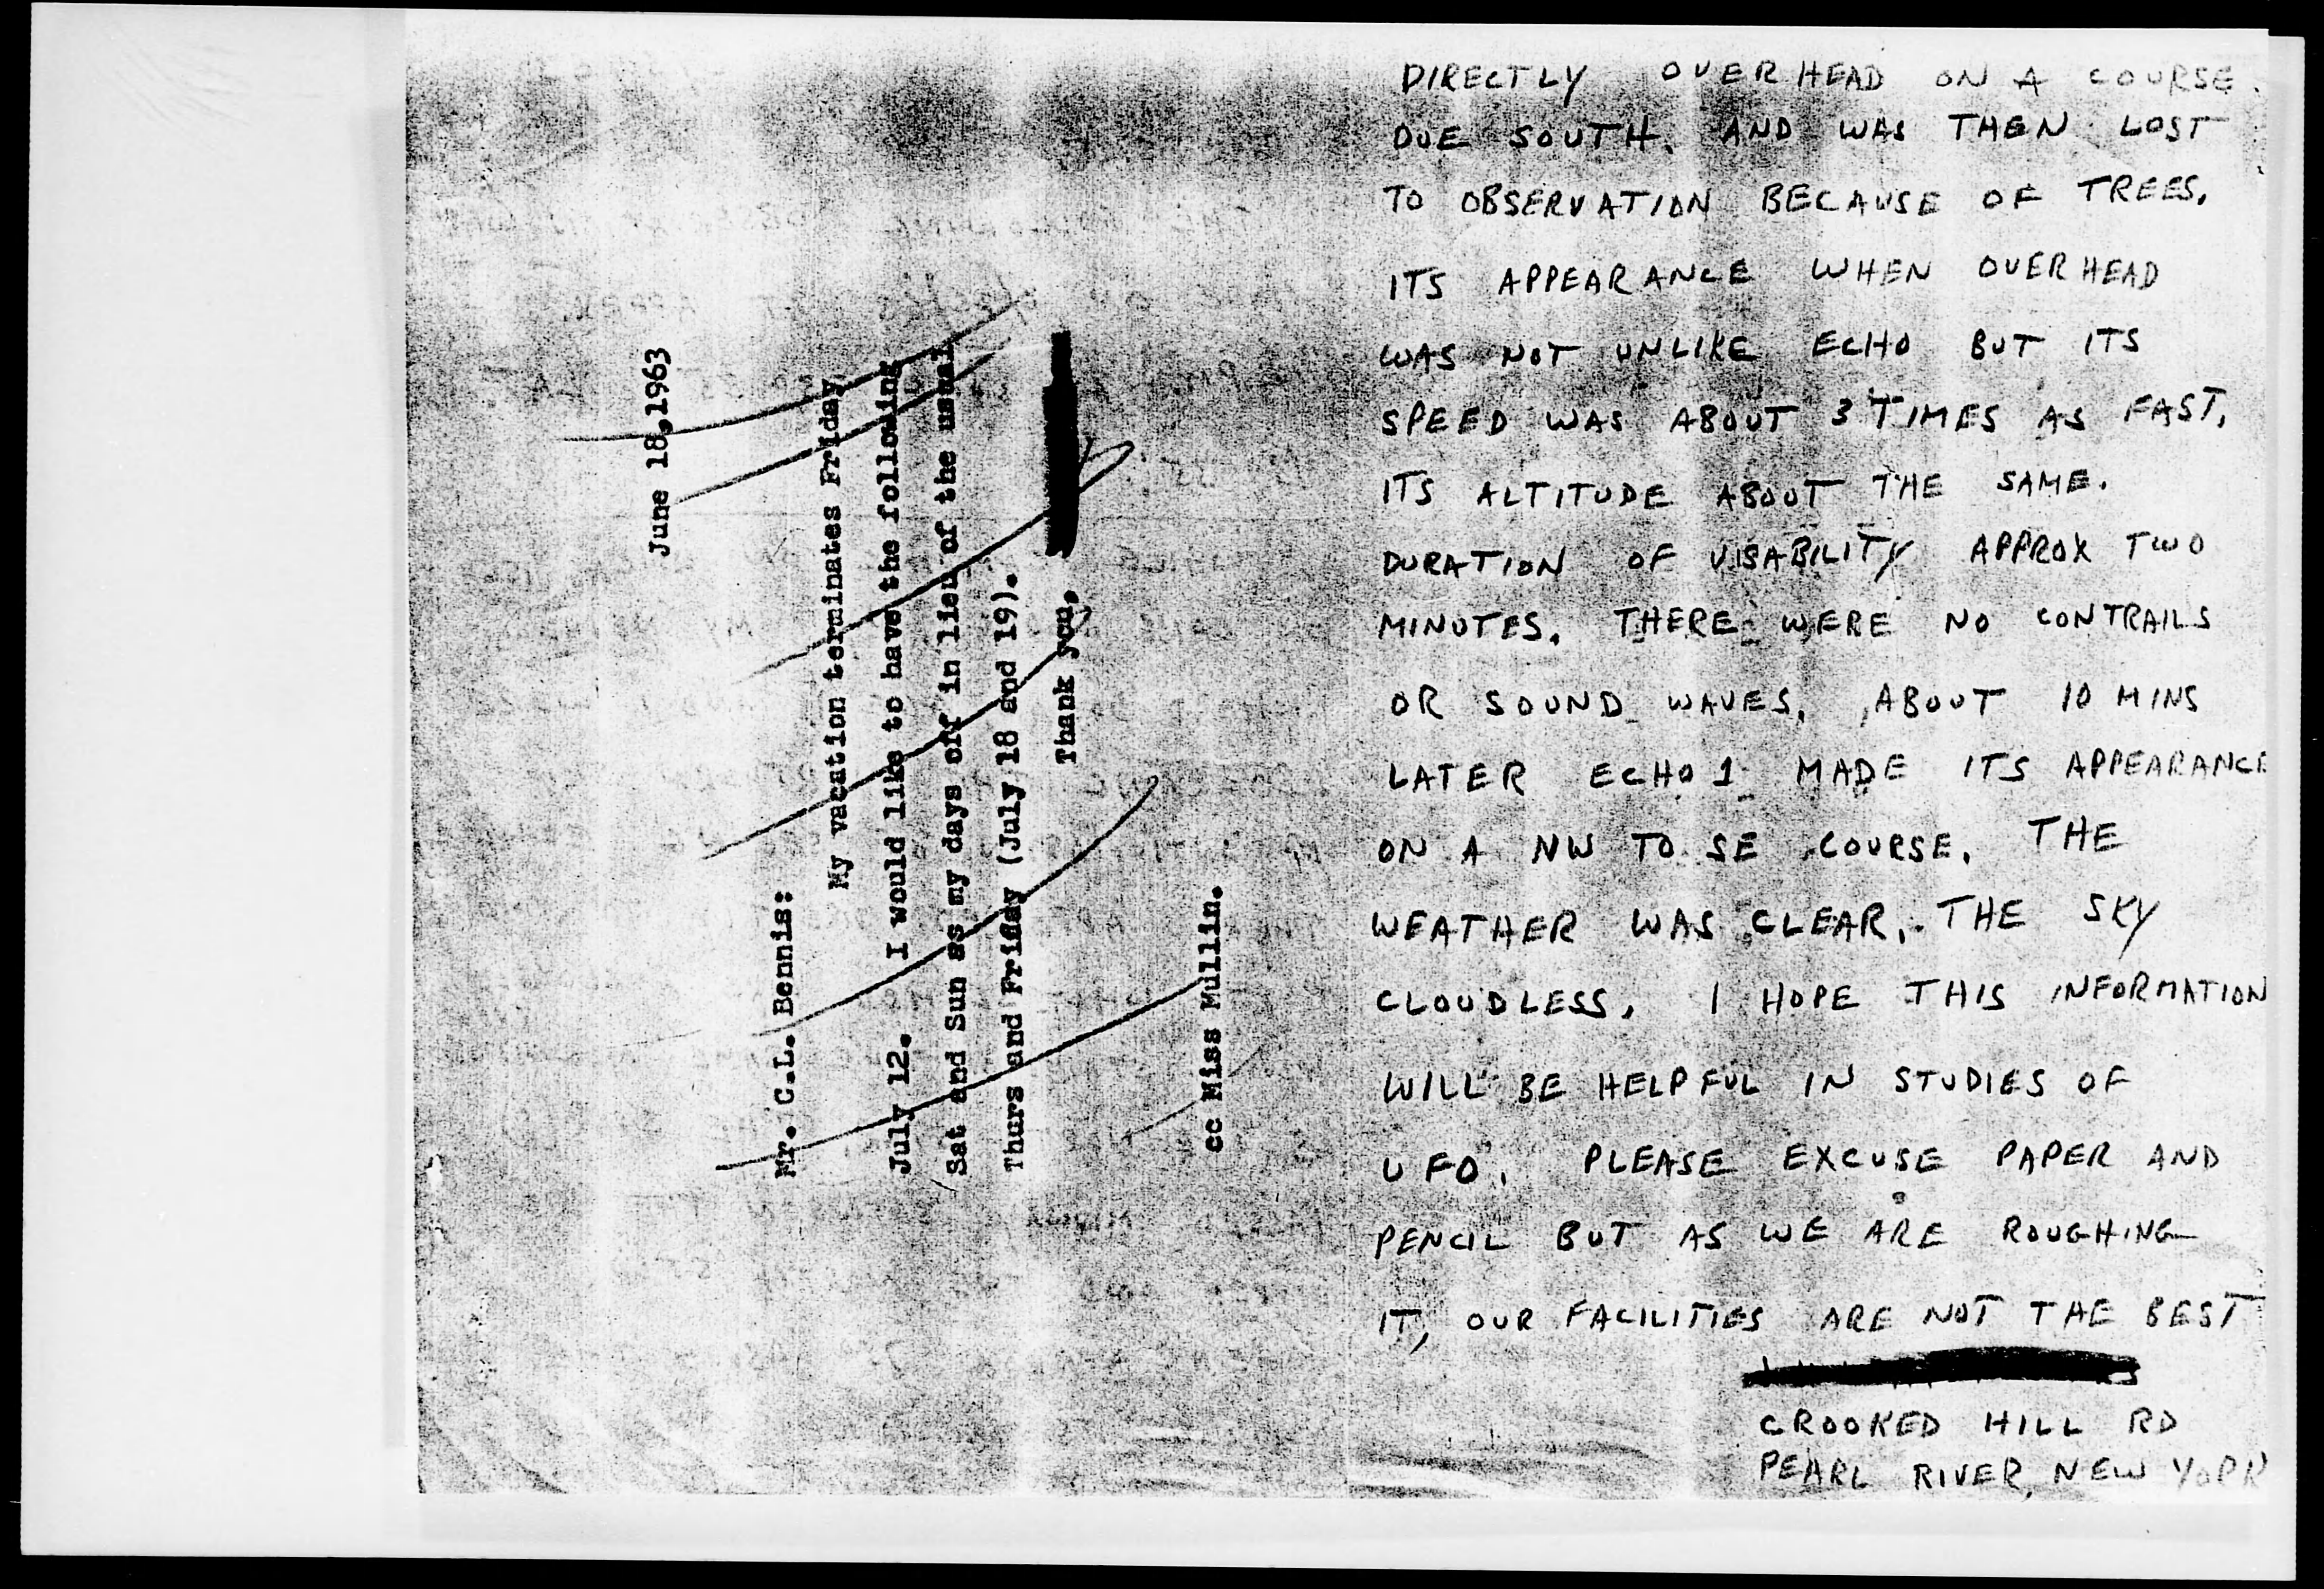 June 18,1963
Mr. C.L. Bennis:
My vacation terminates Friday,
July 12. I would like to have the following
Sat and Sun as my days off in lieu of the usual
Thurs and Friday (July 18 and 19).
Thank you,
cc Miss Mullin.
DIRECTLY OVERHEAD ON A COURSE
DUE SOUTH. AND WAS THEN LOST
TO OBSERVATION BECAUSE OF TREES.
ITS APPEARANCE WHEN OVERHEAD
WAS NOT UNLIKE ECHO BUT ITS
SPEED WAS ABOUT 3 TIMES AS FAST,
ITS ALTITUDE ABOUT THE SAME.
DURATION OF VISABILITY APPROX TWO
MINUTES. THERE WERE NO CONTRAILS
OR SOUND WAVES. ABOUT 10 MINS
LATER ECHO 1 MADE ITS APPEARANCE
ON A NW TO SE COURSE. THE
WEATHER WAS CLEAR, THE SKY
CLOUDLESS. I HOPE THIS INFORMATION
WILL BE HELPFUL IN STUDIES OF
UFO. PLEASE EXCUSE PAPER AND
PENCIL BUT AS WE ARE ROUGHING
IT, OUR FACILITIES ARE NOT THE BEST
CROOKED HILL RD
PEARL RIVER, NEW YORK